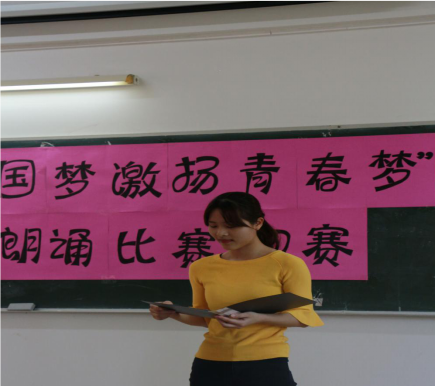 国梦激扬青春梦”
朗诵比赛初赛